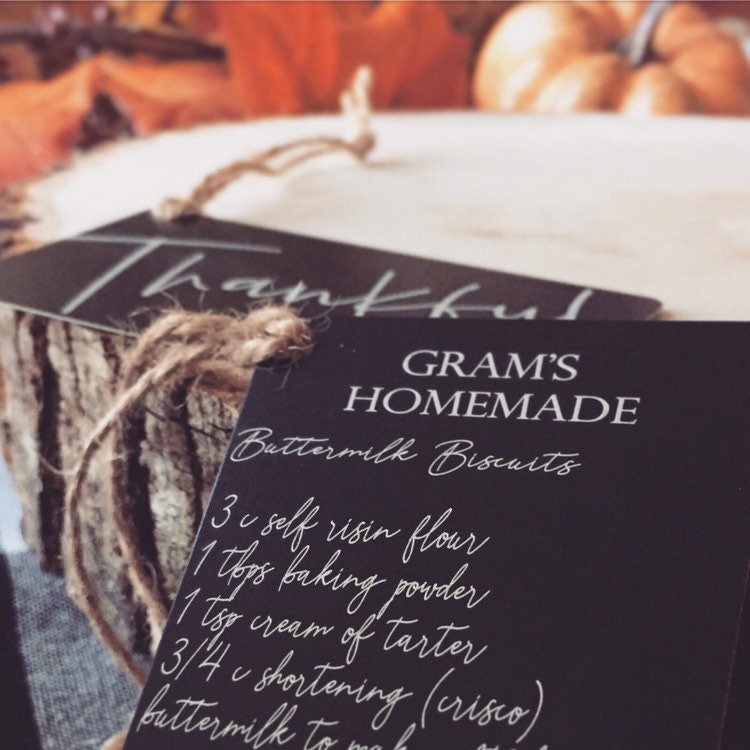 Thankful
GRAM'S
HOMEMADE
Buttermilk Biscuits
3 c self risin flour
1 tbps baking powder
1 tsp cream of tarter
3/4 c shortening (crisco)
buttermilk to